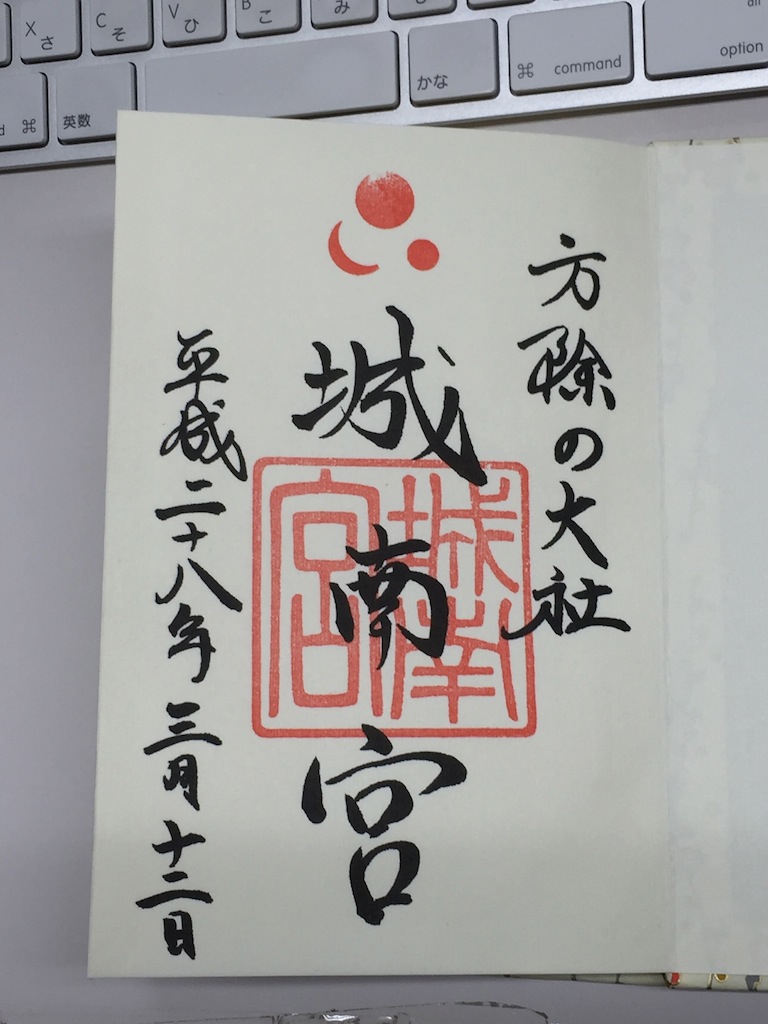 X さ
C そ
V ひ
B こ
み
⌘
英数
かな
⌘ command
alt
option
方除の大社
城南宮
城南宮
平成二十八年三月十二日